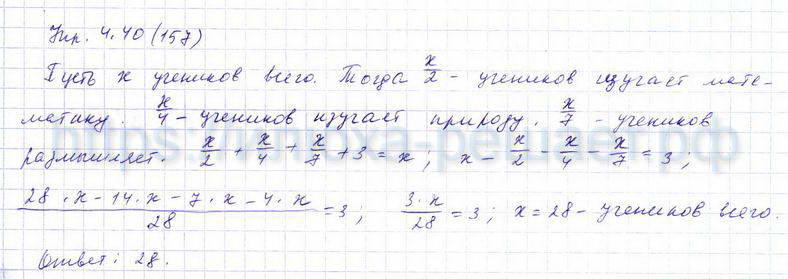 Упр. 4.40(157)
Пусть x учеников всего. Тогда x/2 - учеников изучает мате-
матику. x/4 - учеников изучает природу. x/7 - учеников
размышляет. x/2 + x/4 + x/7 + 3 = x; x - x/2 - x/4 - x/7 = 3;
(28·x - 14·x - 7·x - 4·x)/28 = 3; 3·x/28 = 3; x = 28 - учеников всего.
Ответ: 28.